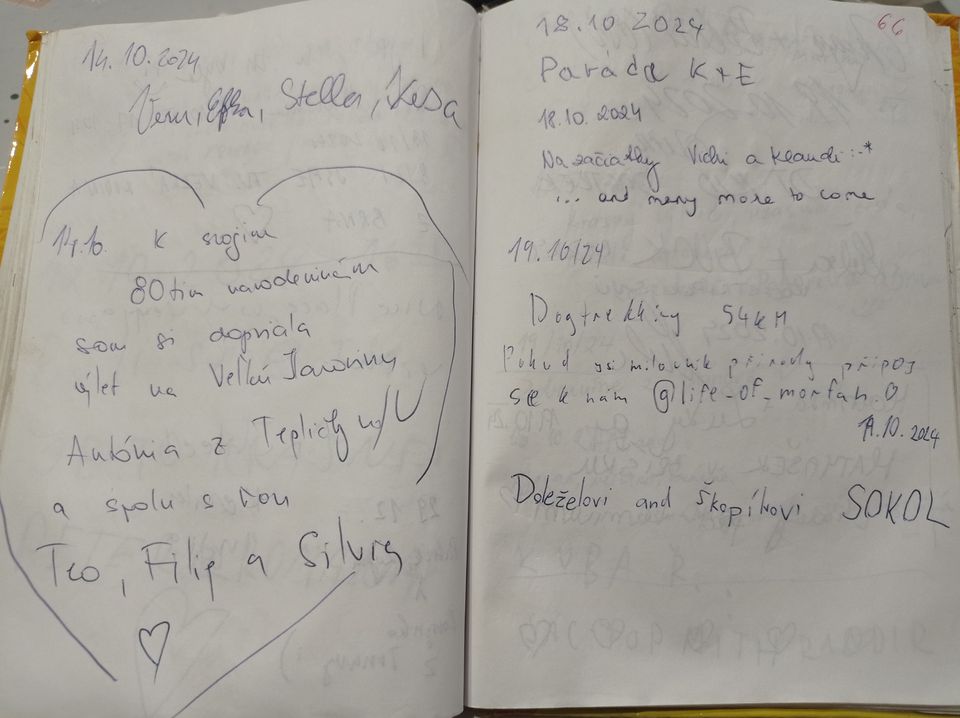 14.10.2024
Stella,
14.10. K svojim
80tim narodeninám
som si dopriala
výlet na Veľkú Javorinu
Antónia z Teplicky n/V
a spolu s ňou
Teo, Filip a Silvia
66
18.10 2024
Paráda K+E
18.10. 2024
Na začiatky Vicki a Klaudi :-*
... and many more to come
19.10/24
Dogtrekking 54kM
Pokud jsi milovník přírody připoj
se k nám @life_of_morfah.O
19.10.2024
Doleželovi and Škopíkovi SOKOL